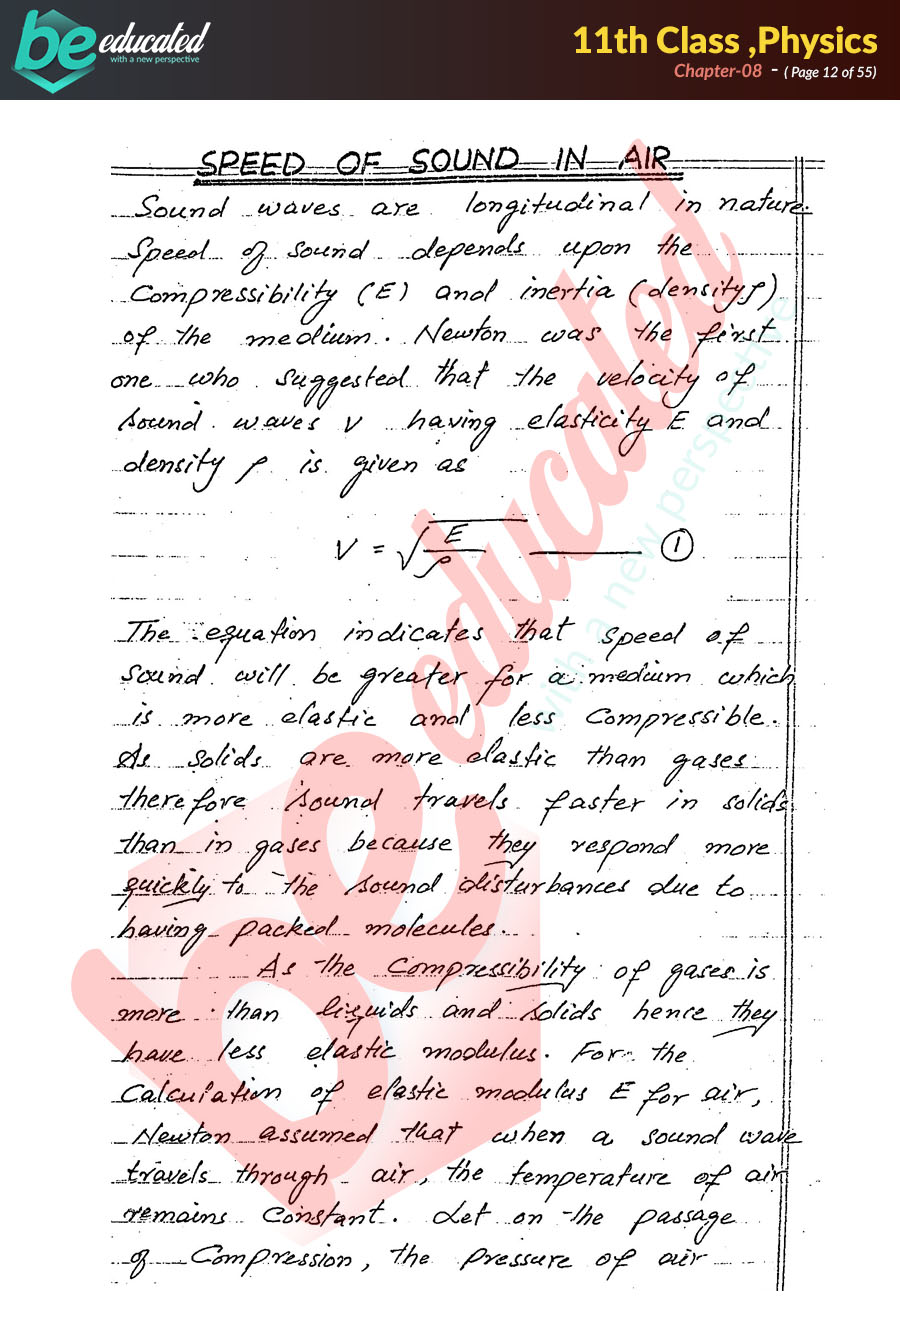 be educated
with a new perspective
11th Class ,Physics
Chapter-08 - ( Page 12 of 55)
SPEED OF SOUND IN AIR
Sound waves are longitudinal in nature.
Speed of sound depends upon the
Compressibility (E) and inertia (density ρ)
of the medium. Newton was the first
one who suggested that the velocity of
sound waves V having elasticity E and
density ρ is given as
V = √(E/ρ) ——— ①
The equation indicates that speed of
sound will be greater for a medium which
is more elastic and less compressible.
As solids are more elastic than gases
therefore sound travels faster in solids
than in gases because they respond more
quickly to the sound disturbances due to
having packed molecules.
As the Compressibility of gases is
more than liquids and solids hence they
have less elastic modulus. For the
Calculation of elastic modulus E for air,
Newton assumed that when a sound wave
travels through air, the temperature of air
remains Constant. Let on the passage
of Compression, the pressure of air
be educated
with a new perspective